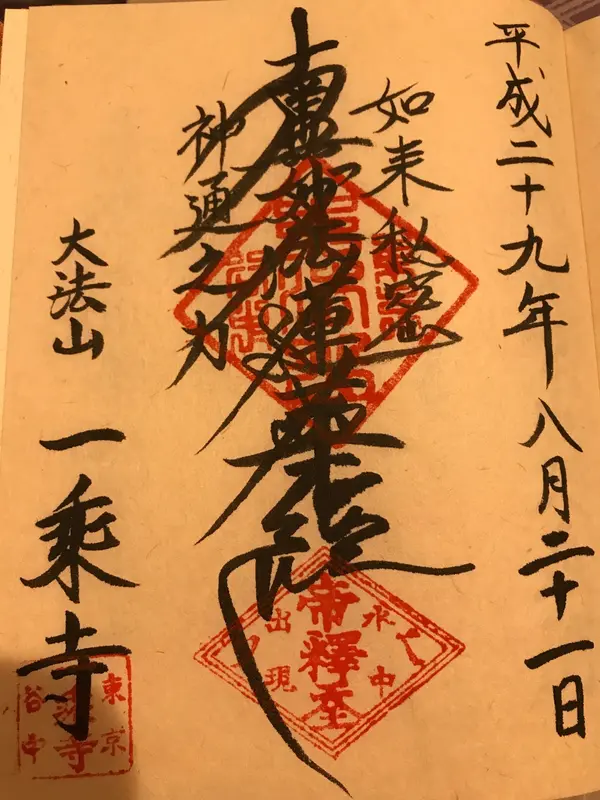 平成二十九年八月二十一日
如来秘密
南無妙法蓮華経
神通之力
大法山
一乗寺
水中
帝釋
出現
東京
谷中